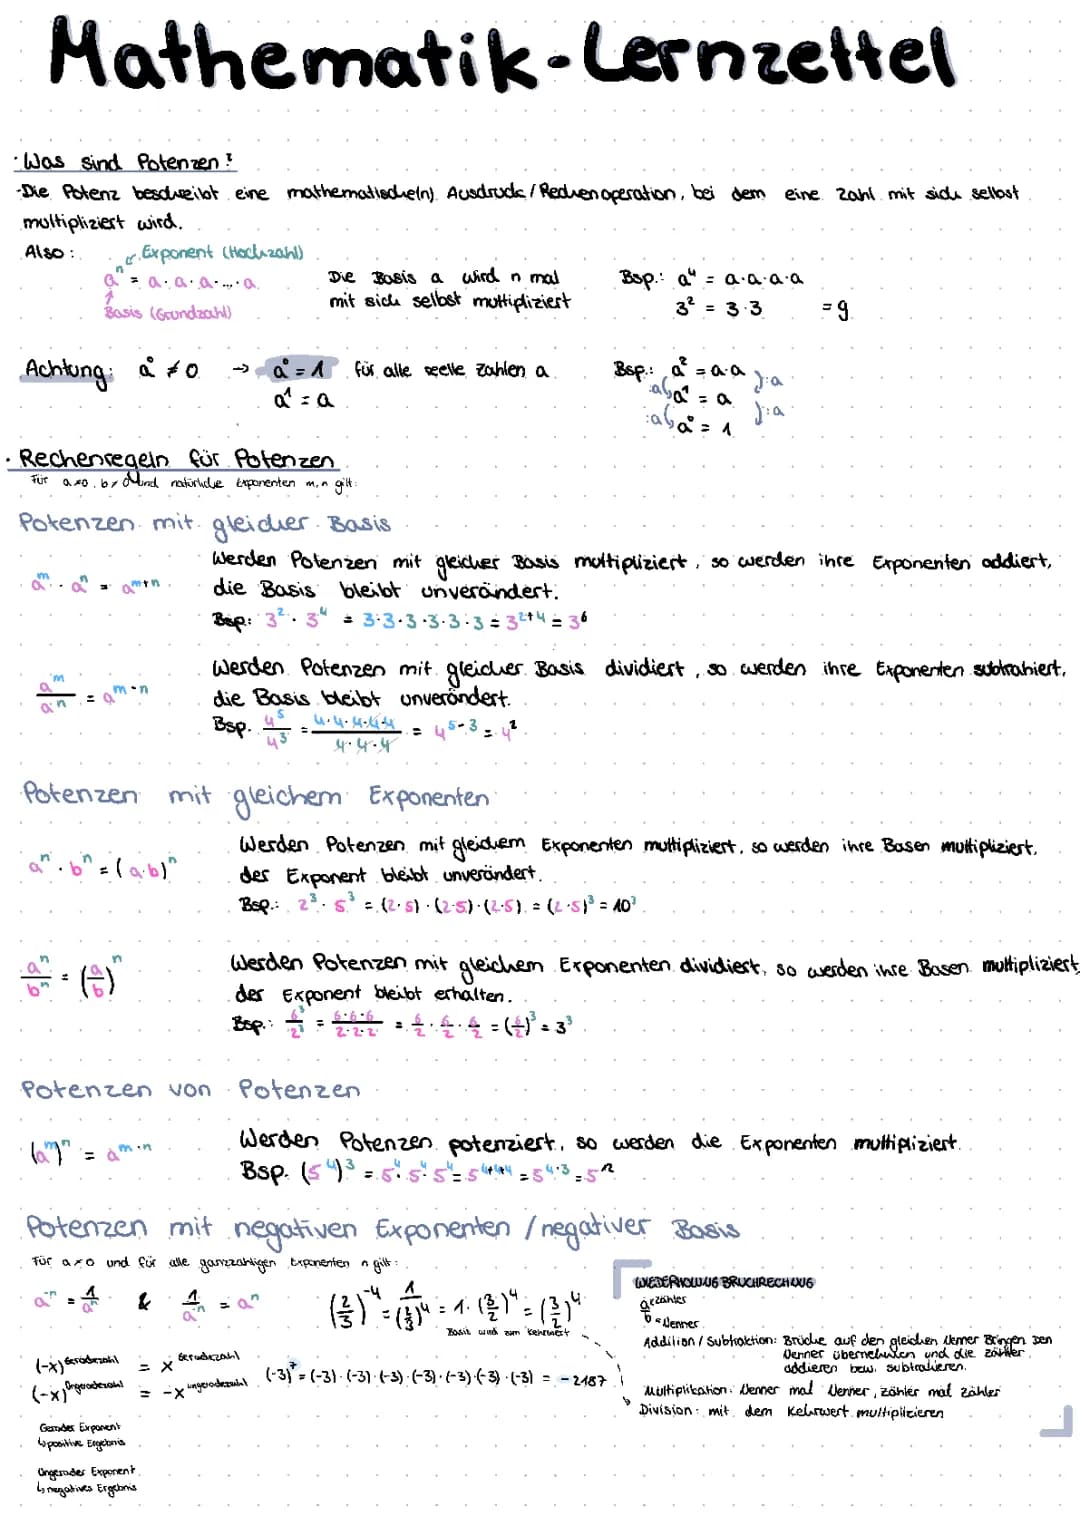 Mathematik-Lernzettel
· Was sind Potenzen?
-Die Potenz beschreibt eine mathematische(n) Ausdruck/Rechenoperation, bei dem eine Zahl mit sich selbst
multipliziert wird.
Also: Exponent (Hochzahl)
aⁿ = a·a·a·...·a
Basis (Grundzahl)
Die Basis a wird n mal
mit sich selbst multipliziert
Bsp.: a⁴ = a·a·a·a
3² = 3·3 = 9
Achtung: a⁰ ≠ 0 → a⁰ = 1 für alle reelle Zahlen a
a¹ = a
Bsp.: a² = a·a
:a a¹ = a :a
:a a⁰ = 1 :a
· Rechenregeln für Potenzen
Für a≠0, b≠0 und natürliche Exponenten m,n gilt:
Potenzen mit gleicher Basis
aᵐ · aⁿ = aᵐ⁺ⁿ
Werden Potenzen mit gleicher Basis multipliziert, so werden ihre Exponenten addiert,
die Basis bleibt unverändert.
Bsp: 3² · 3⁴ = 3·3·3·3·3·3 = 3²⁺⁴ = 3⁶
aᵐ/aⁿ = aᵐ⁻ⁿ
Werden Potenzen mit gleicher Basis dividiert, so werden ihre Exponenten subtrahiert,
die Basis bleibt unverändert.
Bsp. 4⁵/4³ = 4·4·4·4·4/4·4·4 = 4⁵⁻³ = 4²
Potenzen mit gleichem Exponenten
aⁿ · bⁿ = (a·b)ⁿ
Werden Potenzen mit gleichem Exponenten multipliziert, so werden ihre Basen multipliziert.
der Exponent bleibt unverändert.
Bsp.: 2³ · 5³ = (2·5) · (2·5) · (2·5) = (2·5)³ = 10³
aⁿ/bⁿ = (a/b)ⁿ
Werden Potenzen mit gleichem Exponenten dividiert, so werden ihre Basen multipliziert,
der Exponent bleibt erhalten.
Bsp.: 6³/2³ = 6·6·6/2·2·2 = 6/2 · 6/2 · 6/2 = (6/2)³ = 3³
Potenzen von Potenzen
(aᵐ)ⁿ = aᵐ·ⁿ
Werden Potenzen potenziert, so werden die Exponenten multipliziert.
Bsp. (5⁴)³ = 5⁴·5⁴·5⁴ = 5⁴⁺⁴⁺⁴ = 5⁴·³ = 5¹²
Potenzen mit negativen Exponenten / negativer Basis
Für a≠0 und für alle ganzzahligen Exponenten n gilt:
a⁻ⁿ = 1/aⁿ & 1/a⁻ⁿ = aⁿ
(2/3)⁻⁴ = 1/(2/3)⁴ = 1·(3/2)⁴ = (3/2)⁴
Basis wird zum Kehrwert
(-x)^Geradezahl = x^Geradezahl
(-x)^Ungeradezahl = -x^ungeradezahl
(-3)⁷ = (-3)·(-3)·(-3)·(-3)·(-3)·(-3)·(-3) = -2187
Gerader Exponent
↳ positive Ergebnis
Ungerader Exponent
↳ negatives Ergebnis
WIEDERHOLUNG BRUCHRECHNUNG
a = Zähler
b = Nenner
Addition / Subtraktion: Brüche auf den gleichen Nenner Bringen Den
Nenner übernehmen und die Zähler
addieren bzw. subtrahieren.
Multiplikation: Nenner mal Nenner, Zähler mal Zähler
Division: mit dem Kehrwert multiplizieren